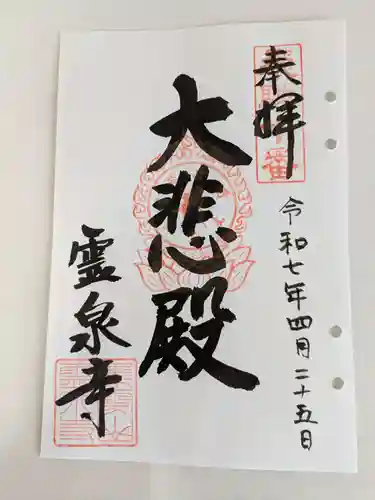 奉拝
令和七年四月二十五日
大悲殿
霊泉寺